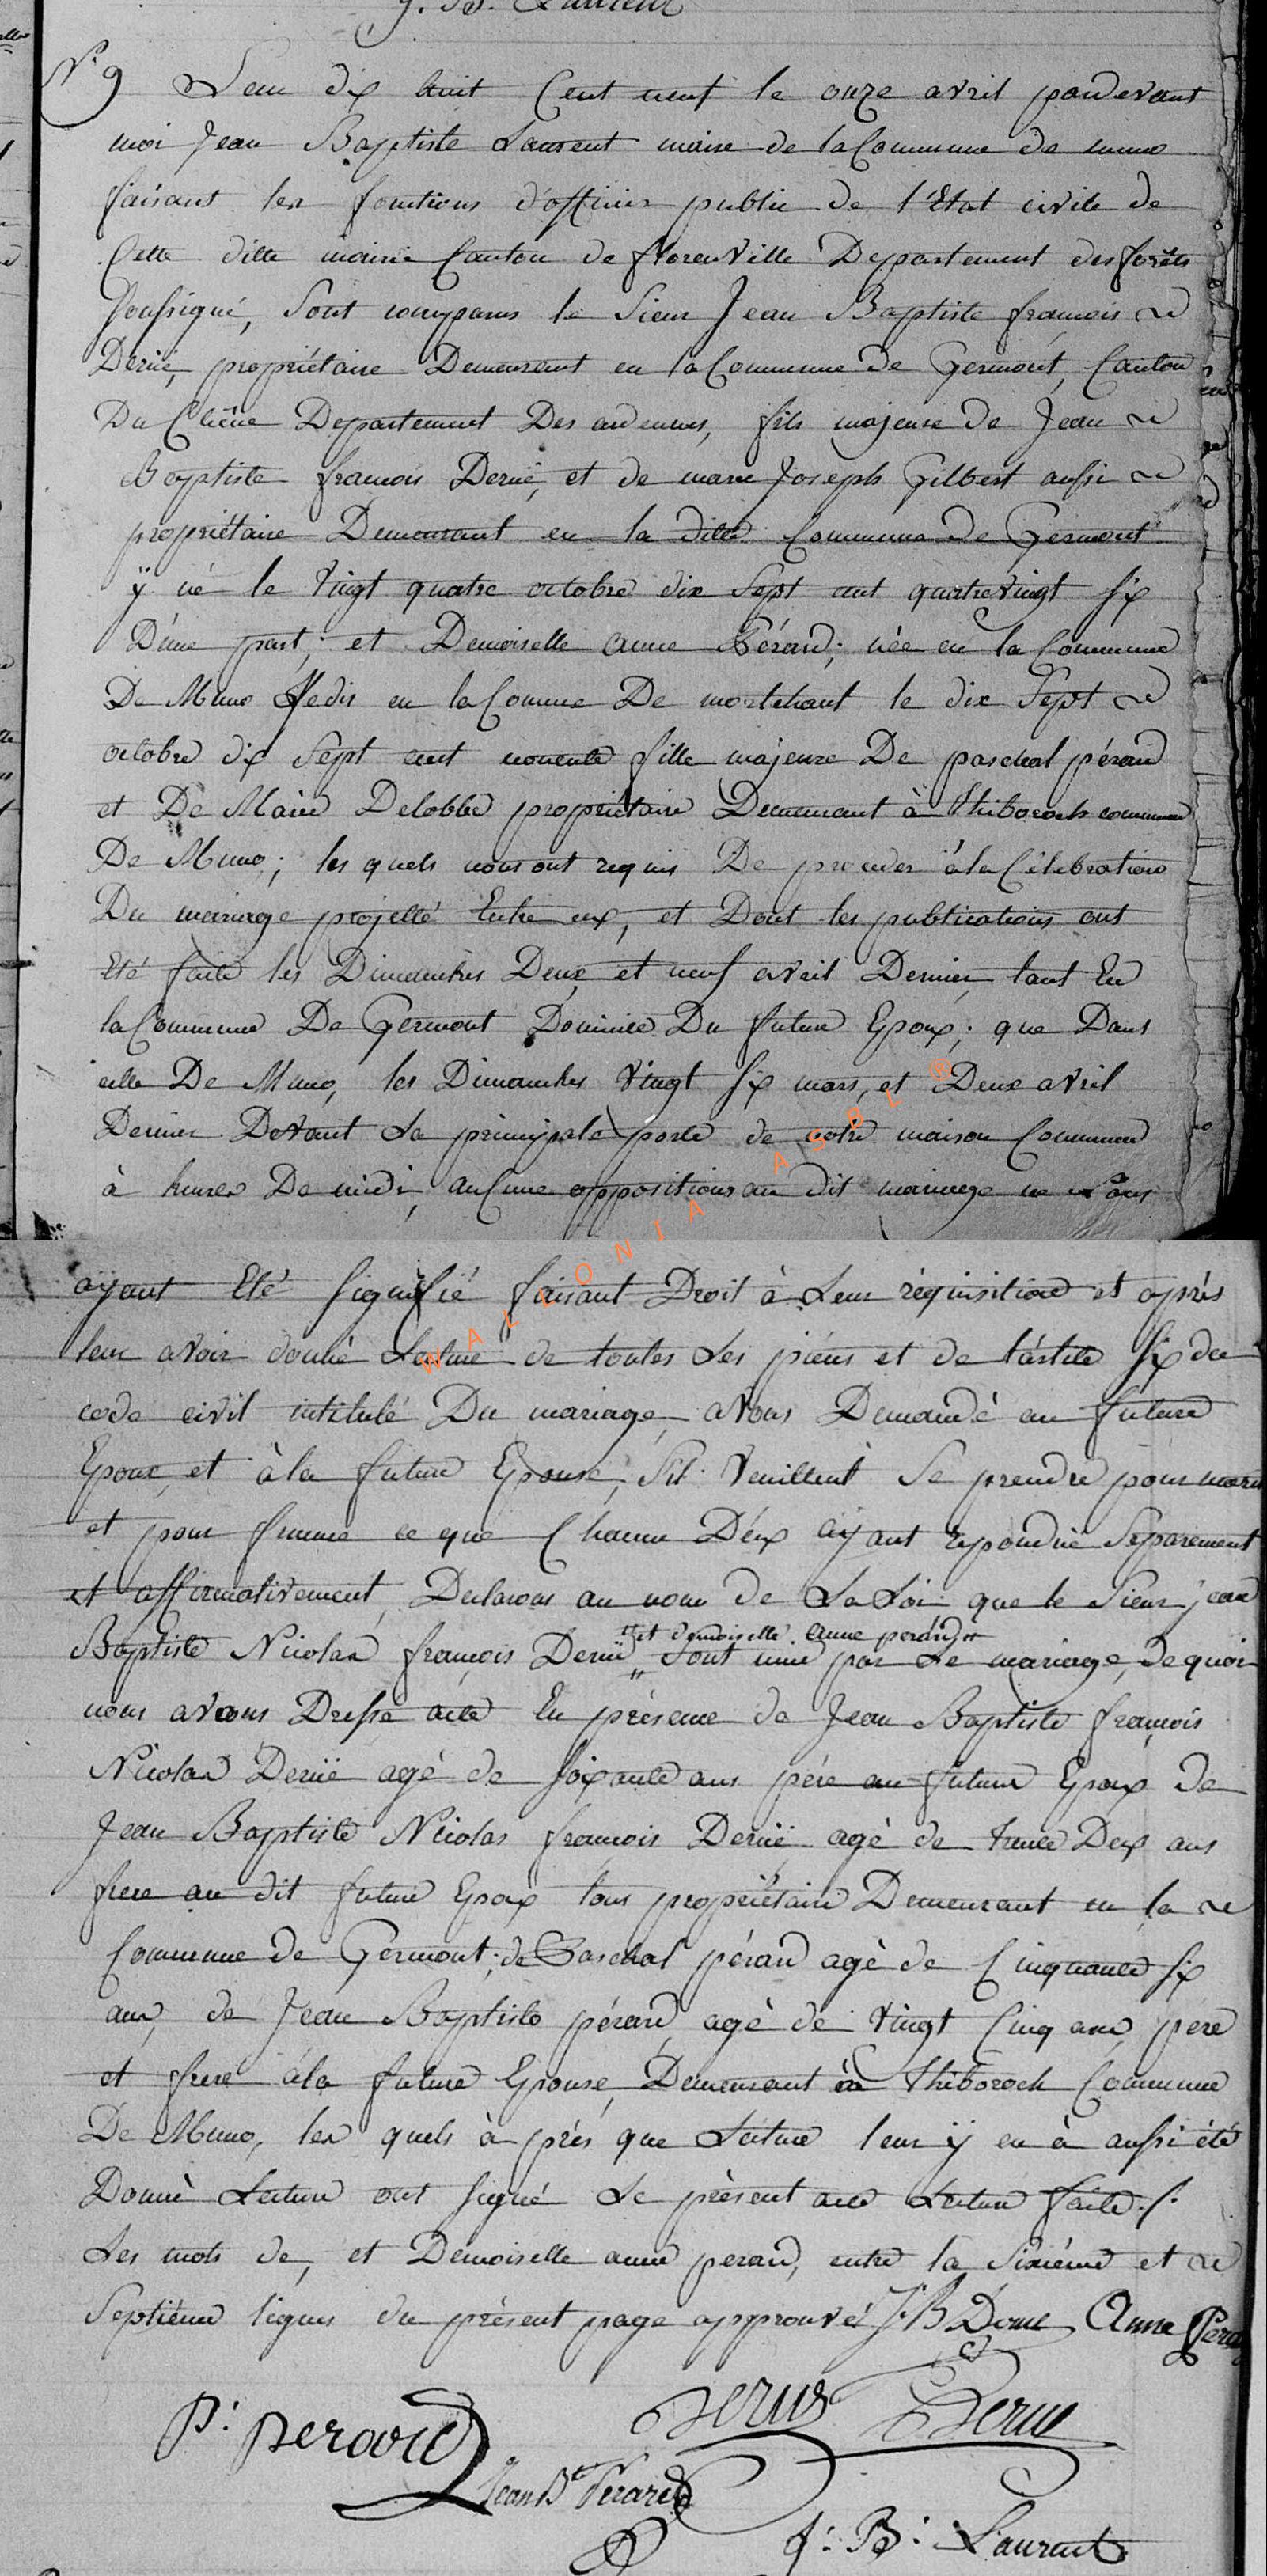 J. B. Laurent
N° 9 L'an dix huit Cent neuf le onze avril pardevant
moi Jean Baptiste Laurent maire de la Commune de muno
faisant les fonctions d'officier public de l'Etat civile de
Cette ditte mairie Canton de florenville Departement des forêts
soussigné, Sont comparus le Sieur Jean Baptiste françois
Deruë, propriétaire Demeurant en la Commune de Germont, Canton
Du Chêne Departement Des ardennes, fils majeure de Jean
Baptiste françois Deruë, et de marie Joseph Gilbert aussi
propriétaire Demeurant en la ditte Commune de Germont
ÿ né le vingt quatre octobre dix Sept cent quatrevingt six
D'une part; et Demoiselle anne Pérard; née en la Commune
De Muno Jedis en la Comune De mortehant le dix Sept
octobre dix Sept cent nonente fille majeure De paschal pérard
et De Marie Delobbe propriétaire Demeurant à Thiboroch commune
De Muno; les quels nous ont requis De proceder à la Célébration
Du mariage projetté Entre eux, et Dont les publications ont
Eté faite les Dimanches Deux et neuf avril Dernier, tant En
la Commune De Germont Domicile Du future Epoux; que Dans
celle De Muno, les Dimanches vingt six mars, et Deux avril
Dernier Devant La principale porte de notre maison Commune
à heures De midi, auCune oppositions au dit mariage ne nous
aÿant Eté signifié faisant Droit à Leur réquisition et après
leur avoir donné Lecture de toutes Les pièces et de l'article six du
code civil intitulé Du mariage, avons Demandé au future
Epoux, et à la future Epouse, s'il veuillent se prendre pour mari
et pour femme ce que Chacun D'eux aÿant répondue Séparement
et affirmativement, Declarons au nom de La Loi que le Sieur jean
"et demoiselle anne perard"
Baptiste Nicolas françois Deruë " Sont unie par Le mariage, De quoi
nous avons Dressé acte En présence de Jean Baptiste françois
Nicolas Deruë agé de soixante ans père au future Epoux de
Jean Baptiste Nicolas françois Deruë agé de trente Deux ans
frere au dit future Epoux tous propriétaire Demeurant en la
Commune de Germont; de Paschal pérard agé de Cinquante six
ans, de Jean Baptiste pérard, agé de vingt Cinq ans, père
et frere à la future Epouse, Demeurant à Thiboroch Commune
De Muno, les quels à près que Lecture leur ÿ en à aussi été
Donné Lecture ont signé Le présent acte Lecture faite ./.
Les mots de, et Demoiselle anne perard, entre la sixième et
Septième lignes du présent page approuvés J B Derue Anne Perard
P: perard Derue Derue
Jean Bte Perard
J: B: Laurent
WALLONIA ASBL ®